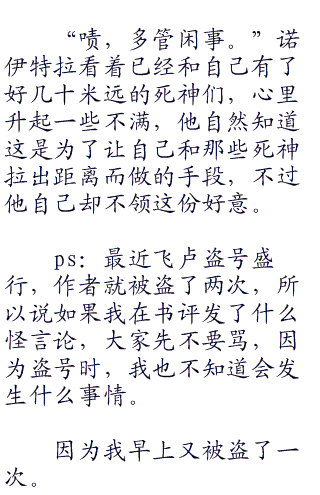 “啧，多管闲事。”诺
伊特拉看着已经和自己有了
好几十米远的死神们，心里
升起一些不满，他自然知道
这是为了让自己和那些死神
拉出距离而做的手段，不过
他自己却不领这份好意。
ps：最近飞卢盗号盛
行，作者就被盗了两次，所
以说如果我在书评发了什么
怪言论，大家先不要骂，因
为盗号时，我也不知道会发
生什么事情。
因为我早上又被盗了一
次。